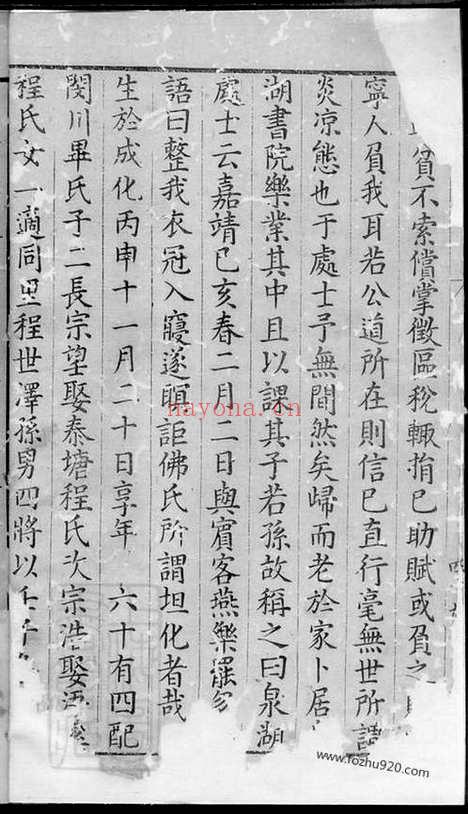 貧不索償掌徵區稅輒捐已助賦或負之
寧人負我耳若公道所在則信已直行毫無世所謂
炎凉態也于處士予無間然矣歸而老於家卜居
湖書院樂業其中且以課其子若孫故稱之曰泉湖
處士云嘉靖已亥春二月二日與賓客燕樂罷忽
語曰整我衣冠入寢遂瞑詎佛氏所謂坦化者哉
生於成化丙申十一月二十日享年 六十有四配
閔川畢氏子二長宗望娶泰塘程氏次宗浩娶
程氏女一適同里程世澤孫男四將以
nayona.cn
www.fozhu920.com